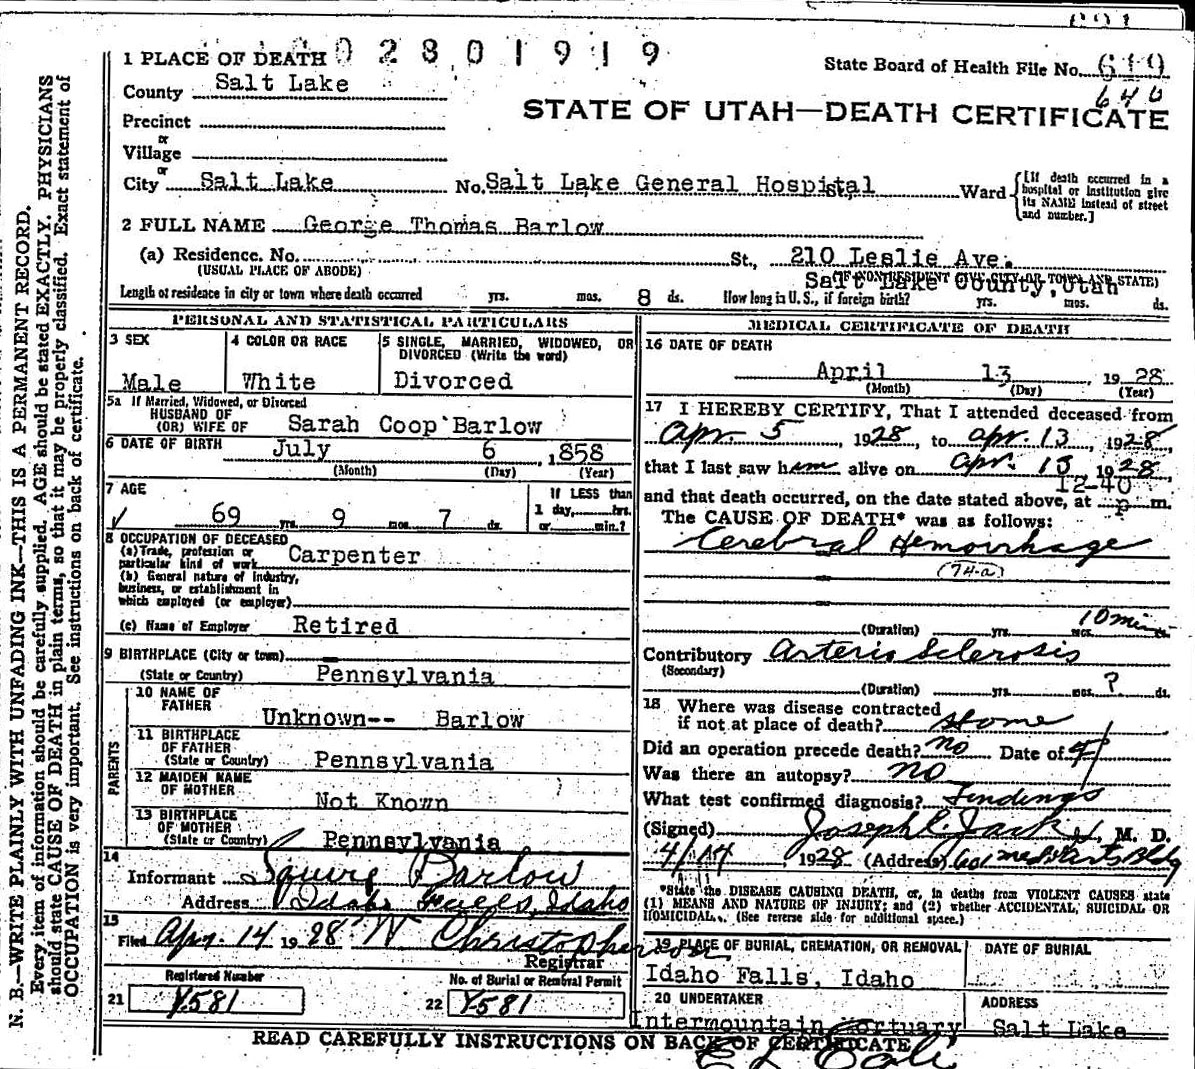 0 2 8 0 1 9 1 9
1 PLACE OF DEATH
State Board of Health File No. 640
County Salt Lake
STATE OF UTAH—DEATH CERTIFICATE
Precinct
or
Village
or
City Salt Lake No. Salt Lake General Hospital St., Ward
[If death occurred in a hospital or institution give its NAME instead of street and number.]
2 FULL NAME George Thomas Barlow
(a) Residence. No. St., 210 Leslie Ave.
(USUAL PLACE OF ABODE) Salt Lake County, Utah
(IF NONRESIDENT GIVE CITY OR TOWN AND STATE)
Length of residence in city or town where death occurred yrs. mos. 8 ds. How long in U. S., if foreign birth? yrs. mos. ds.
PERSONAL AND STATISTICAL PARTICULARS
3 SEX
Male
4 COLOR OR RACE
White
5 SINGLE, MARRIED, WIDOWED, OR
DIVORCED (Write the word)
Divorced
5a If Married, Widowed, or Divorced
HUSBAND OF
(OR) WIFE OF Sarah Coop Barlow
6 DATE OF BIRTH July 6, 1858
(Month) (Day) (Year)
7 AGE
69 yrs. 9 mos. 7 ds.
If LESS than
1 day, hrs.
or min.?
8 OCCUPATION OF DECEASED
(a) Trade, profession or
particular kind of work Carpenter
(b) General nature of Industry,
business, or establishment in
which employed (or employer)
(c) Name of Employer Retired
9 BIRTHPLACE (City or town)
(State or Country) Pennsylvania
PARENTS
10 NAME OF
FATHER
Unknown-- Barlow
11 BIRTHPLACE
OF FATHER
(State or Country) Pennsylvania
12 MAIDEN NAME
OF MOTHER
Not Known
13 BIRTHPLACE
OF MOTHER
(State or Country) Pennsylvania
14
Informant Squire Barlow
Address Idaho Falls, Idaho
15
Filed Apr. 14 1928 W Christopherson
Registrar
Registered Number
21 Y-581
No. of Burial or Removal Permit
22 Y-581
MEDICAL CERTIFICATE OF DEATH
16 DATE OF DEATH
April 13, 1928
(Month) (Day) (Year)
17 I HEREBY CERTIFY, That I attended deceased from
Apr. 5, 1928, to Apr. 13, 1928,
that I last saw him alive on Apr. 13 1928
12-40
and that death occurred, on the date stated above, at p m.
The CAUSE OF DEATH* was as follows:
Cerebral Hemorrhage
(74-a)
10 min
(Duration) yrs. mos. ds.
Contributory Arterio Sclerosis
(Secondary)
(Duration) yrs. mos. ? ds.
18 Where was disease contracted
if not at place of death? Home
Did an operation precede death? no Date of
Was there an autopsy? no
What test confirmed diagnosis? Findings
(Signed) Joseph E. Jack, M. D.
4/14 1928 (Address) 601 Med Arts Bldg
*State the DISEASE CAUSING DEATH, or, in deaths from VIOLENT CAUSES state
(1) MEANS AND NATURE OF INJURY; and (2) whether ACCIDENTAL, SUICIDAL OR
HOMICIDAL. (See reverse side for additional space.)
19 PLACE OF BURIAL, CREMATION, OR REMOVAL
Idaho Falls, Idaho
DATE OF BURIAL
20 UNDERTAKER
Intermountain Mortuary
ADDRESS
Salt Lake
READ CAREFULLY INSTRUCTIONS ON BACK OF CERTIFICATE
N. B.—WRITE PLAINLY WITH UNFADING INK—THIS IS A PERMANENT RECORD.
Every item of information should be carefully supplied. AGE should be stated EXACTLY. PHYSICIANS
should state CAUSE OF DEATH in plain terms, so that it may be properly classified. Exact statement of
OCCUPATION is very important. See instructions on back of certificate.